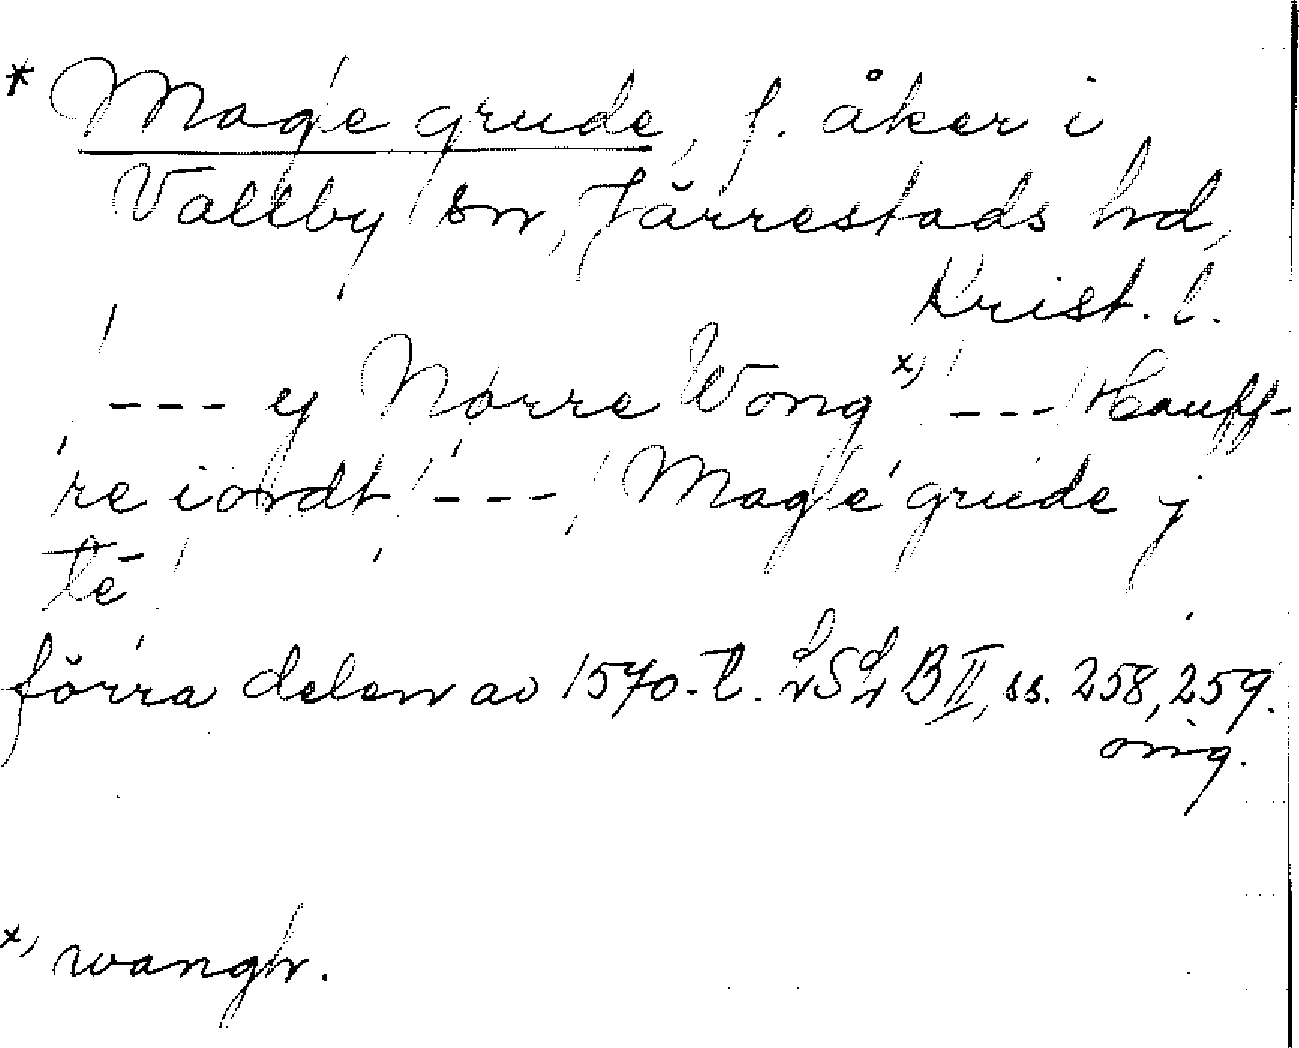 * Mage grude, f. åker i
Vallby sn, Järrestads hd,
Krist. l.
--- ej Nørre Wong x) --- Hauff-
re iordt --- Mage grude j
të
förra delen av 1570-t. LSL B II, ss. 258, 259.
orig.
x) wangh.